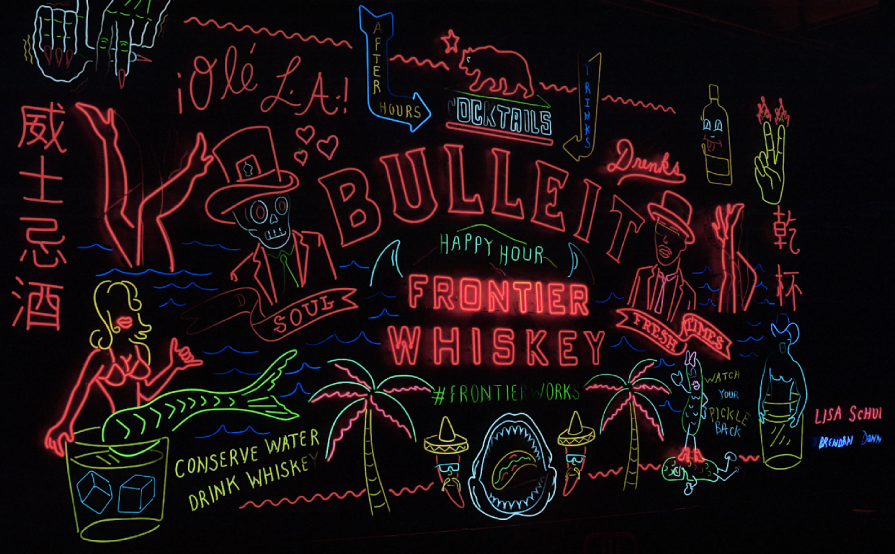 ¡Olé L.A.!
AFTER
HOURS
COCKTAILS
DRINKS
Drinks
威士忌酒
乾杯
BULLEIT
HAPPY HOUR
FRONTIER
WHISKEY
SOUL
FRESH TIMES
#FRONTIERWORKS
CONSERVE WATER
DRINK WHISKEY
WATCH
YOUR
PICKLE
BACK
LISA SCHUL
BRENDAN DONN